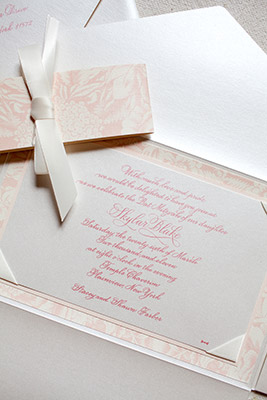 With much love and pride
we would be delighted to have you join us
as we celebrate the Bat Mitzvah of our daughter
Skylar Blake
Saturday, the twenty-sixth of March
Two thousand and eleven
at eight o'clock in the evening
Temple
New York
Stacey and Shawn Farber
Drive